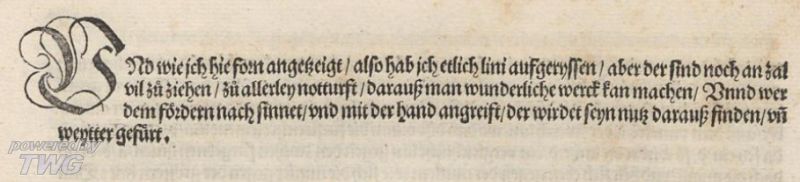 VNd wie jch hie forn angetzeigt/ also hab jch etlich lini aufgeryssen/ aber der sind noch an zal
vil zů ziehen/ zů allerley notturft/ darauß man wunderliche werck kan machen/ Vnnd wer
dem fördern nach sinnet/ vnd mit der hand angreift/ der wirdet seyn nutz darauß finden/ vñ
weytter gefürt.
powered by
TWG